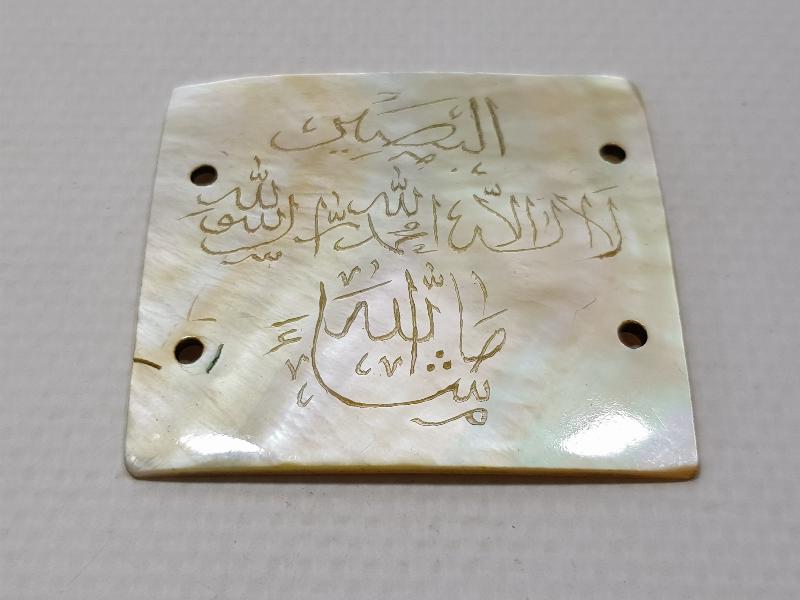 لا اله الا الله محمد رسول الله
ما شاء الله